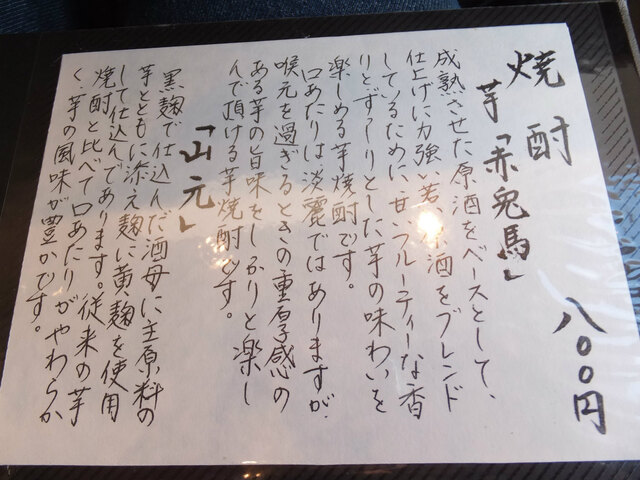 焼酎
八〇〇円
芋「赤兎馬」
成熟させた原酒をベースとして、
仕上げに力強い若い原酒をブレンド
しているために、甘いフルーティーな香
りとずっしりとした芋の味わいを
楽しめる芋焼酎です。
口あたりは淡麗ではありますが、
喉元を過ぎるときの重厚感の
ある芋の旨味をしっかりと楽し
んで頂ける芋焼酎です。
「山元」
黒麹で仕込んだ酒母に主原料の
芋とともに添え麹に黄麹を使用
して仕込んであります。従来の芋
焼酎と比べて口あたりがやわらか
く、芋の風味が豊かです。